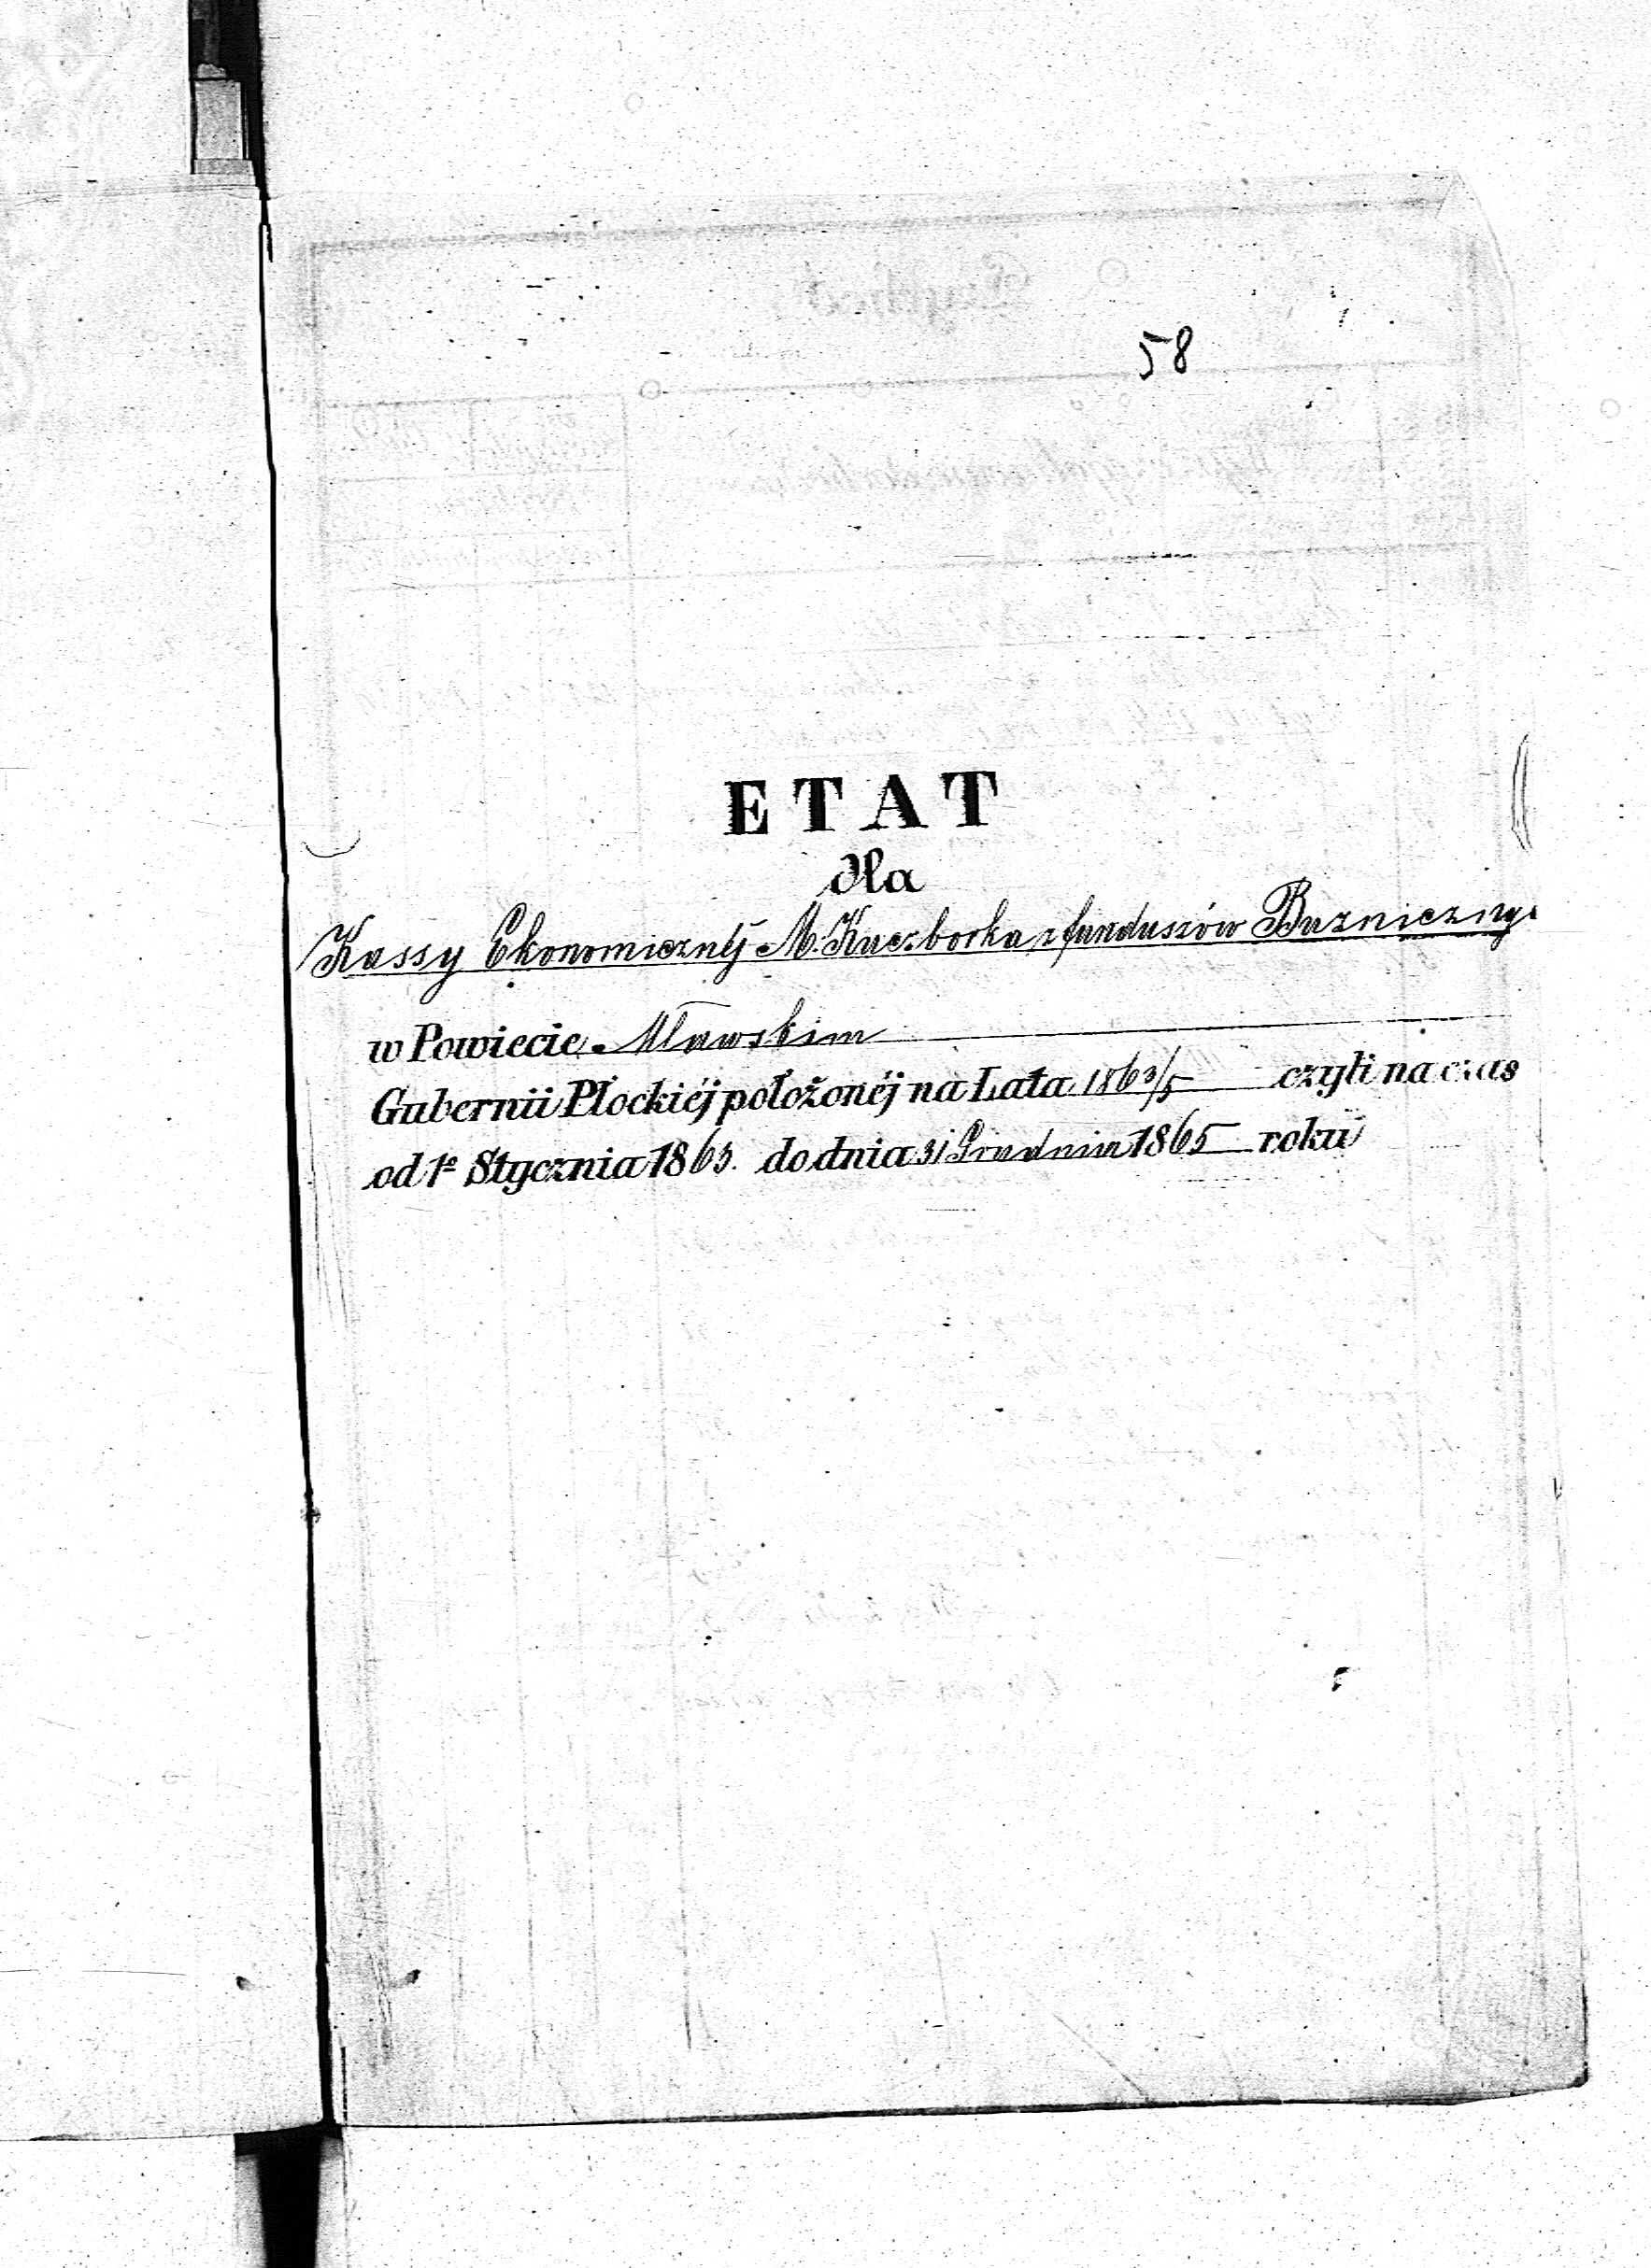 58
ETAT
dla
Kassy Ekonomicznéj M. Kuczborka z funduszów Bozniczny
w Powiecie Mławskim
Gubernii Płockiéj położonéj na Lata 1863/5 czyli na czas
od 1º Stycznia 1863. do dnia 31 Grudnia 1865 roku